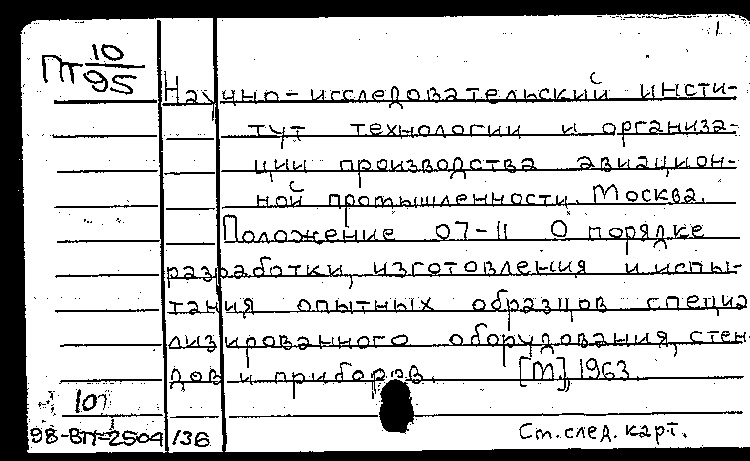 Пт 10/95
Научно-исследовательский инсти-
тут технологии и организа-
ции производства авиацион-
ной промышленности. Москва.
Положение 07-11 О порядке
разработки, изготовления и испы-
тания опытных образцов специа
лизированного оборудования, стен-
дов и приборов. [М], 1963.
101
98-ВП-2504 136
Ст. след. карт.